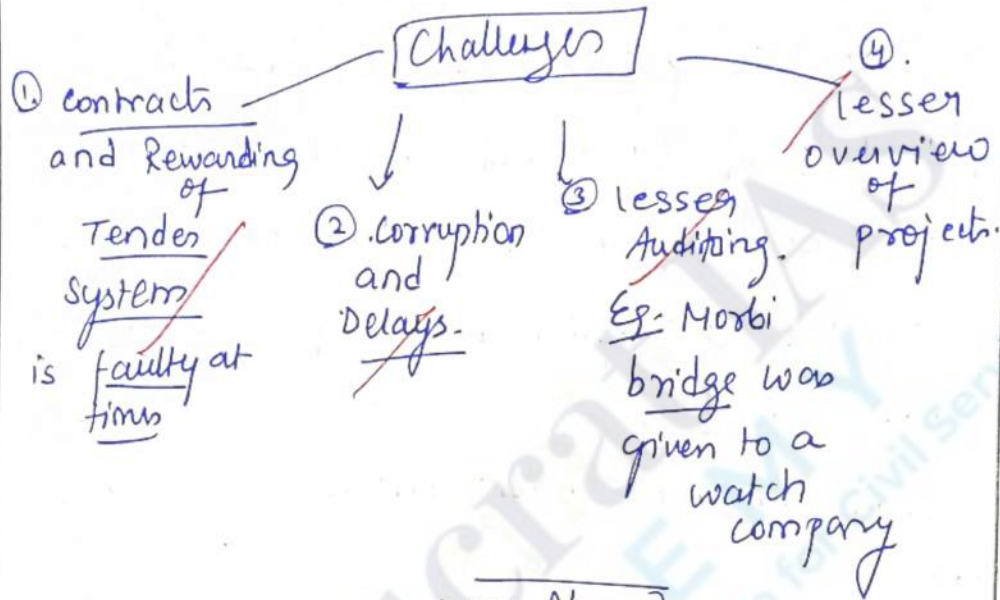 Challenges
① contracts
and Rewarding
of
Tender
system
is faulty at
times
② .Corruption
and
Delays.
③ lesser
Auditing.
Eg:- Morbi
bridge was
given to a
watch
company
④.
lesser
overview
of
projects.